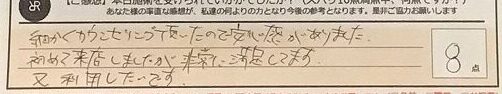 【ご感想】本日施術を受けられていかがでしたか？（スパラ10点満点中、何点ですか？）
あなた様の率直な感想が、私達の何よりの力となり今後の参考となります。是非ご協力お願いします
細かくカウンセリングして頂いたので安心感がありました。
初めて来店しましたが非常に満足してます。
又利用したいです。
8点